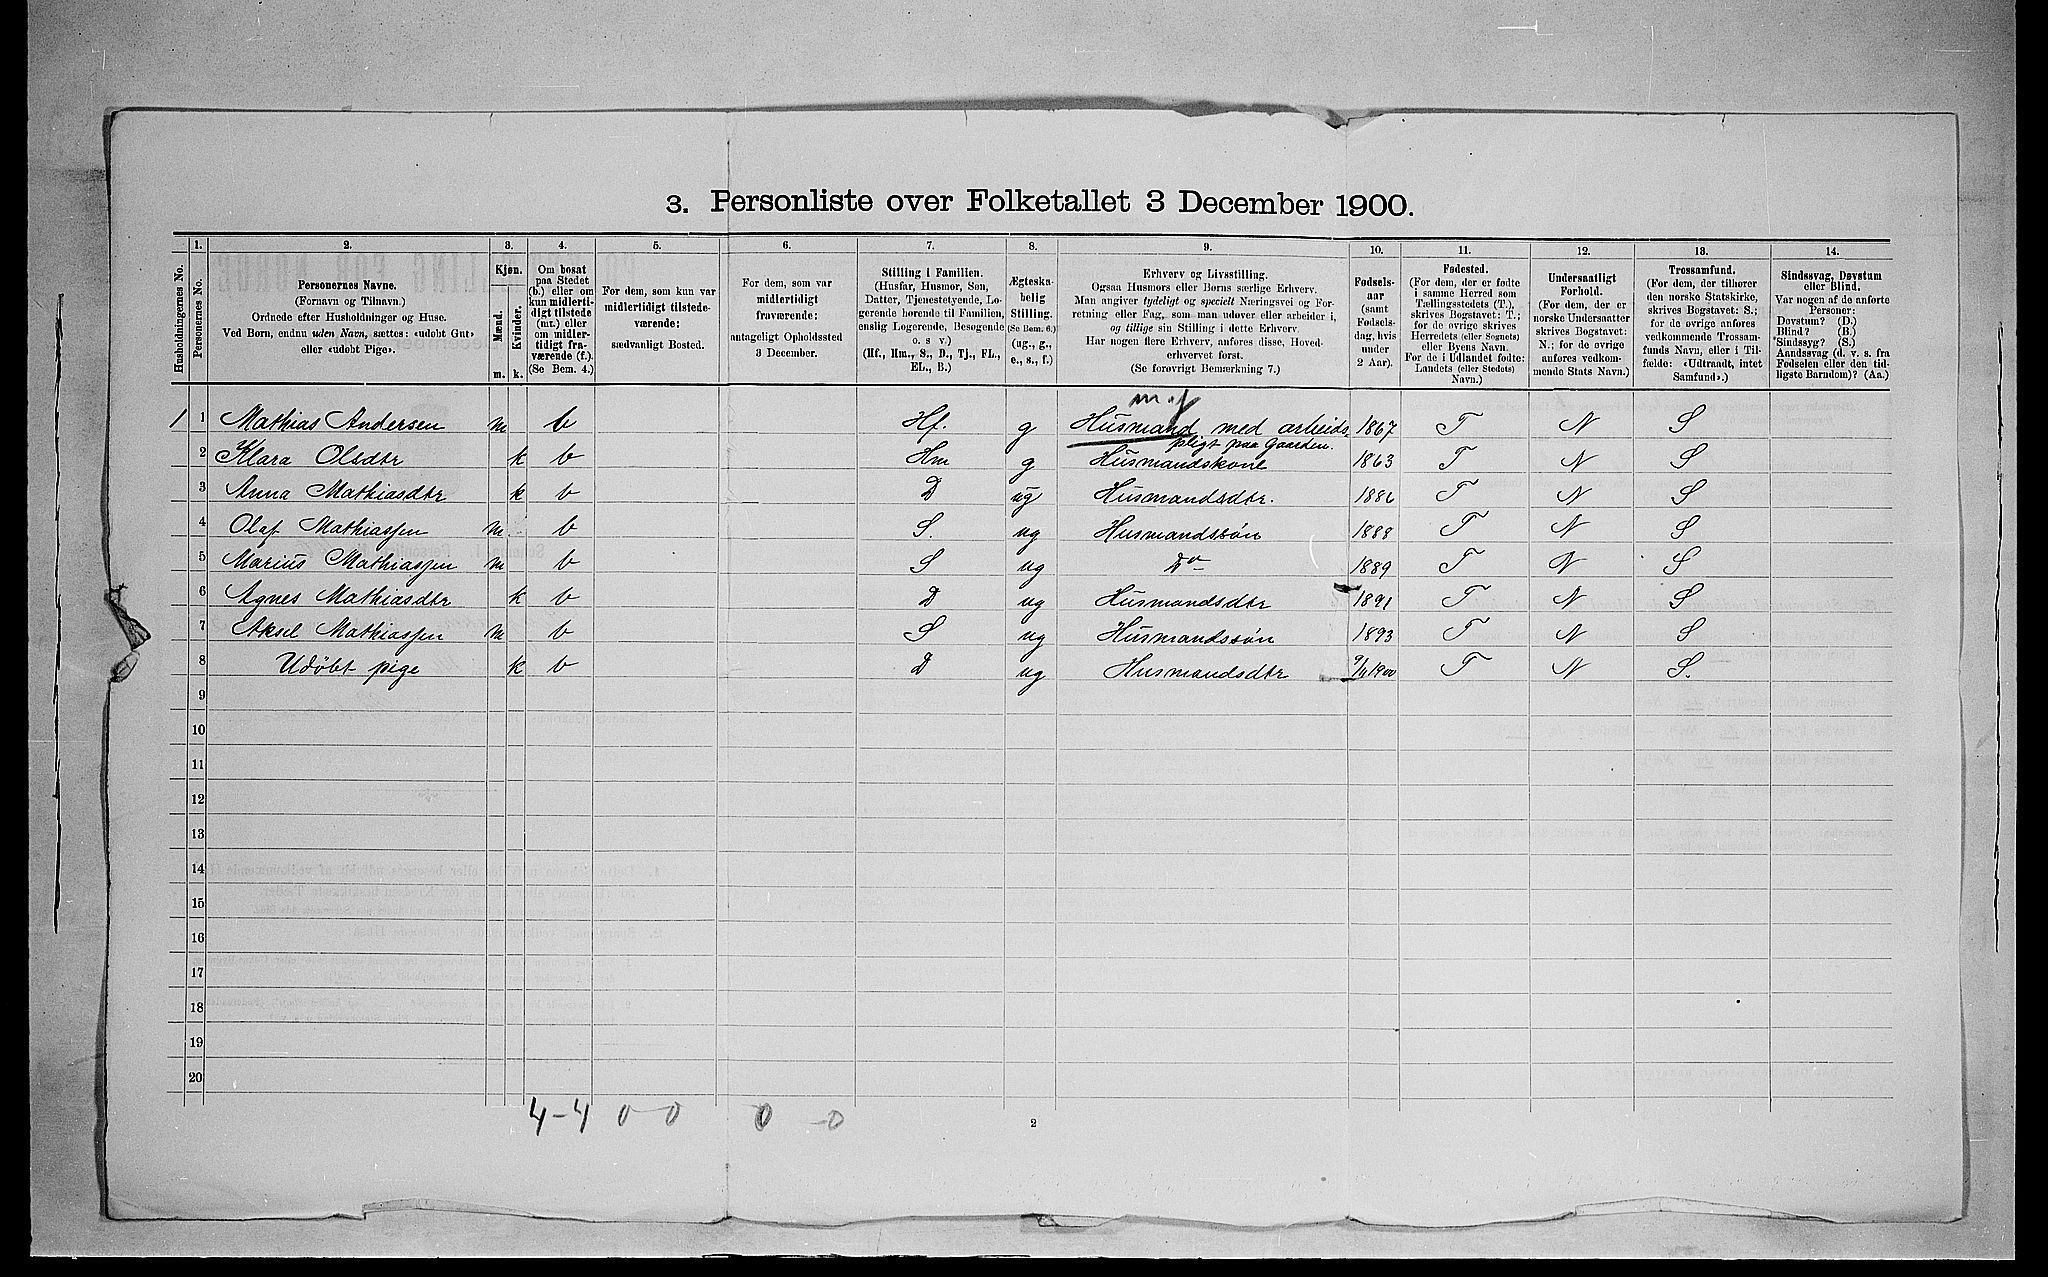 3. Personliste over Folketallet 3 December 1900.
1. 2. 3. 4. 5. 6. 7. 8. 9. 10. 11. 12. 13. 14.
Husholdningernes No.
Personernes No.
Personernes Navne.
(Fornavn og Tilnavn.)
Ordnede efter Husholdninger og Huse.
Ved Børn, endnu uden Navn, sættes: «udøbt Gut»
eller «udøbt Pige».
Kjøn.
Mænd.
Kvinder.
m. k.
Om bosat
paa Stedet
(b.) eller om
kun midlerti-
digt tilstede
(mt.) eller
om midler-
tidigt fra-
værende (f.).
(Se Bem. 4.)
For dem, som kun var
midlertidigt tilstede-
værende:
sædvanligt Bosted.
For dem, som var
midlertidigt
fraværende:
antageligt Opholdssted
3 December.
Stilling i Familien.
(Husfar, Husmor, Søn,
Datter, Tjenestetyende, Lo-
gerende hørende til Familien,
enslig Logerende, Besøgende
o. s v.)
(Hf., Hm., S., D., Tj., FL.,
EL., B.)
Ægteska-
belig
Stilling.
(Se Bem. 6.)
(ug., g.,
e., s., f.)
Erhverv og Livsstilling.
Ogsaa Husmors eller Børns særlige Erhverv.
Man angiver tydeligt og specielt Næringsvei og For-
retning eller Fag, som man udøver eller arbeider i,
og tillige sin Stilling i dette Erhverv.
Har nogen flere Erhverv, anføres disse, Hoved-
erhvervet først.
(Se forøvrigt Bemærkning 7.)
Fødsels-
aar
(samt
Fødsels-
dag, hvis
under
2 Aar).
Fødested.
(For dem, der er fødte
i samme Herred som
Tællingsstedets (T.),
skrives Bogstavet: T.;
for de øvrige skrives
Herredets (eller Sognets)
eller Byens Navn.
For de i Udlandet fødte:
Landets (eller Stedets)
Navn.)
Undersaatligt
Forhold.
(For dem, der er
norske Undersaatter
skrives Bogstavet:
N.; for de øvrige
anføres vedkom-
mende Stats Navn.)
Trossamfund.
(For dem, der tilhører
den norske Statskirke,
skrives Bogstavet: S.;
for de øvrige anføres
vedkommende Trossam-
funds Navn, eller i Til-
fælde: «Udtraadt, intet
Samfund».)
Sindssvag, Døvstum
eller Blind.
Var nogen af de anførte
Personer:
Døvstum? (D.)
Blind? (B.)
Sindssyg? (S.)
Aandssvag (d. v. s. fra
Fødselen eller den tid-
ligste Barndom)? (Aa.)
m.j
1 1 Mathias Andersen m b Hf. g Husmand med arbeids- 1867 T N S
pligt paa Gaarden.
2 Klara Olsdtr k b Hm g Husmandskone 1863 T N S
3 Anna Mathiasdtr k b D ug Husmandsdtr. 1886 T N S
4 Olaf Mathiassen m. b S. ug Husmandssön 1888 T N S
5 Marius Mathiassen m b S ug Do 1889 T N S
6 Agnes Mathiasdtr k b D ug Husmandsdtr 1891 T N S
7 Aksel Mathiassen m b S ug Husmandssön 1893 T N S
8 Udöbt pige k b D ug Husmandsdtr 1900 T N S.
9
10
11
12
13
14
15
16
17
18
19
20
4-4 0-0 0-0
2